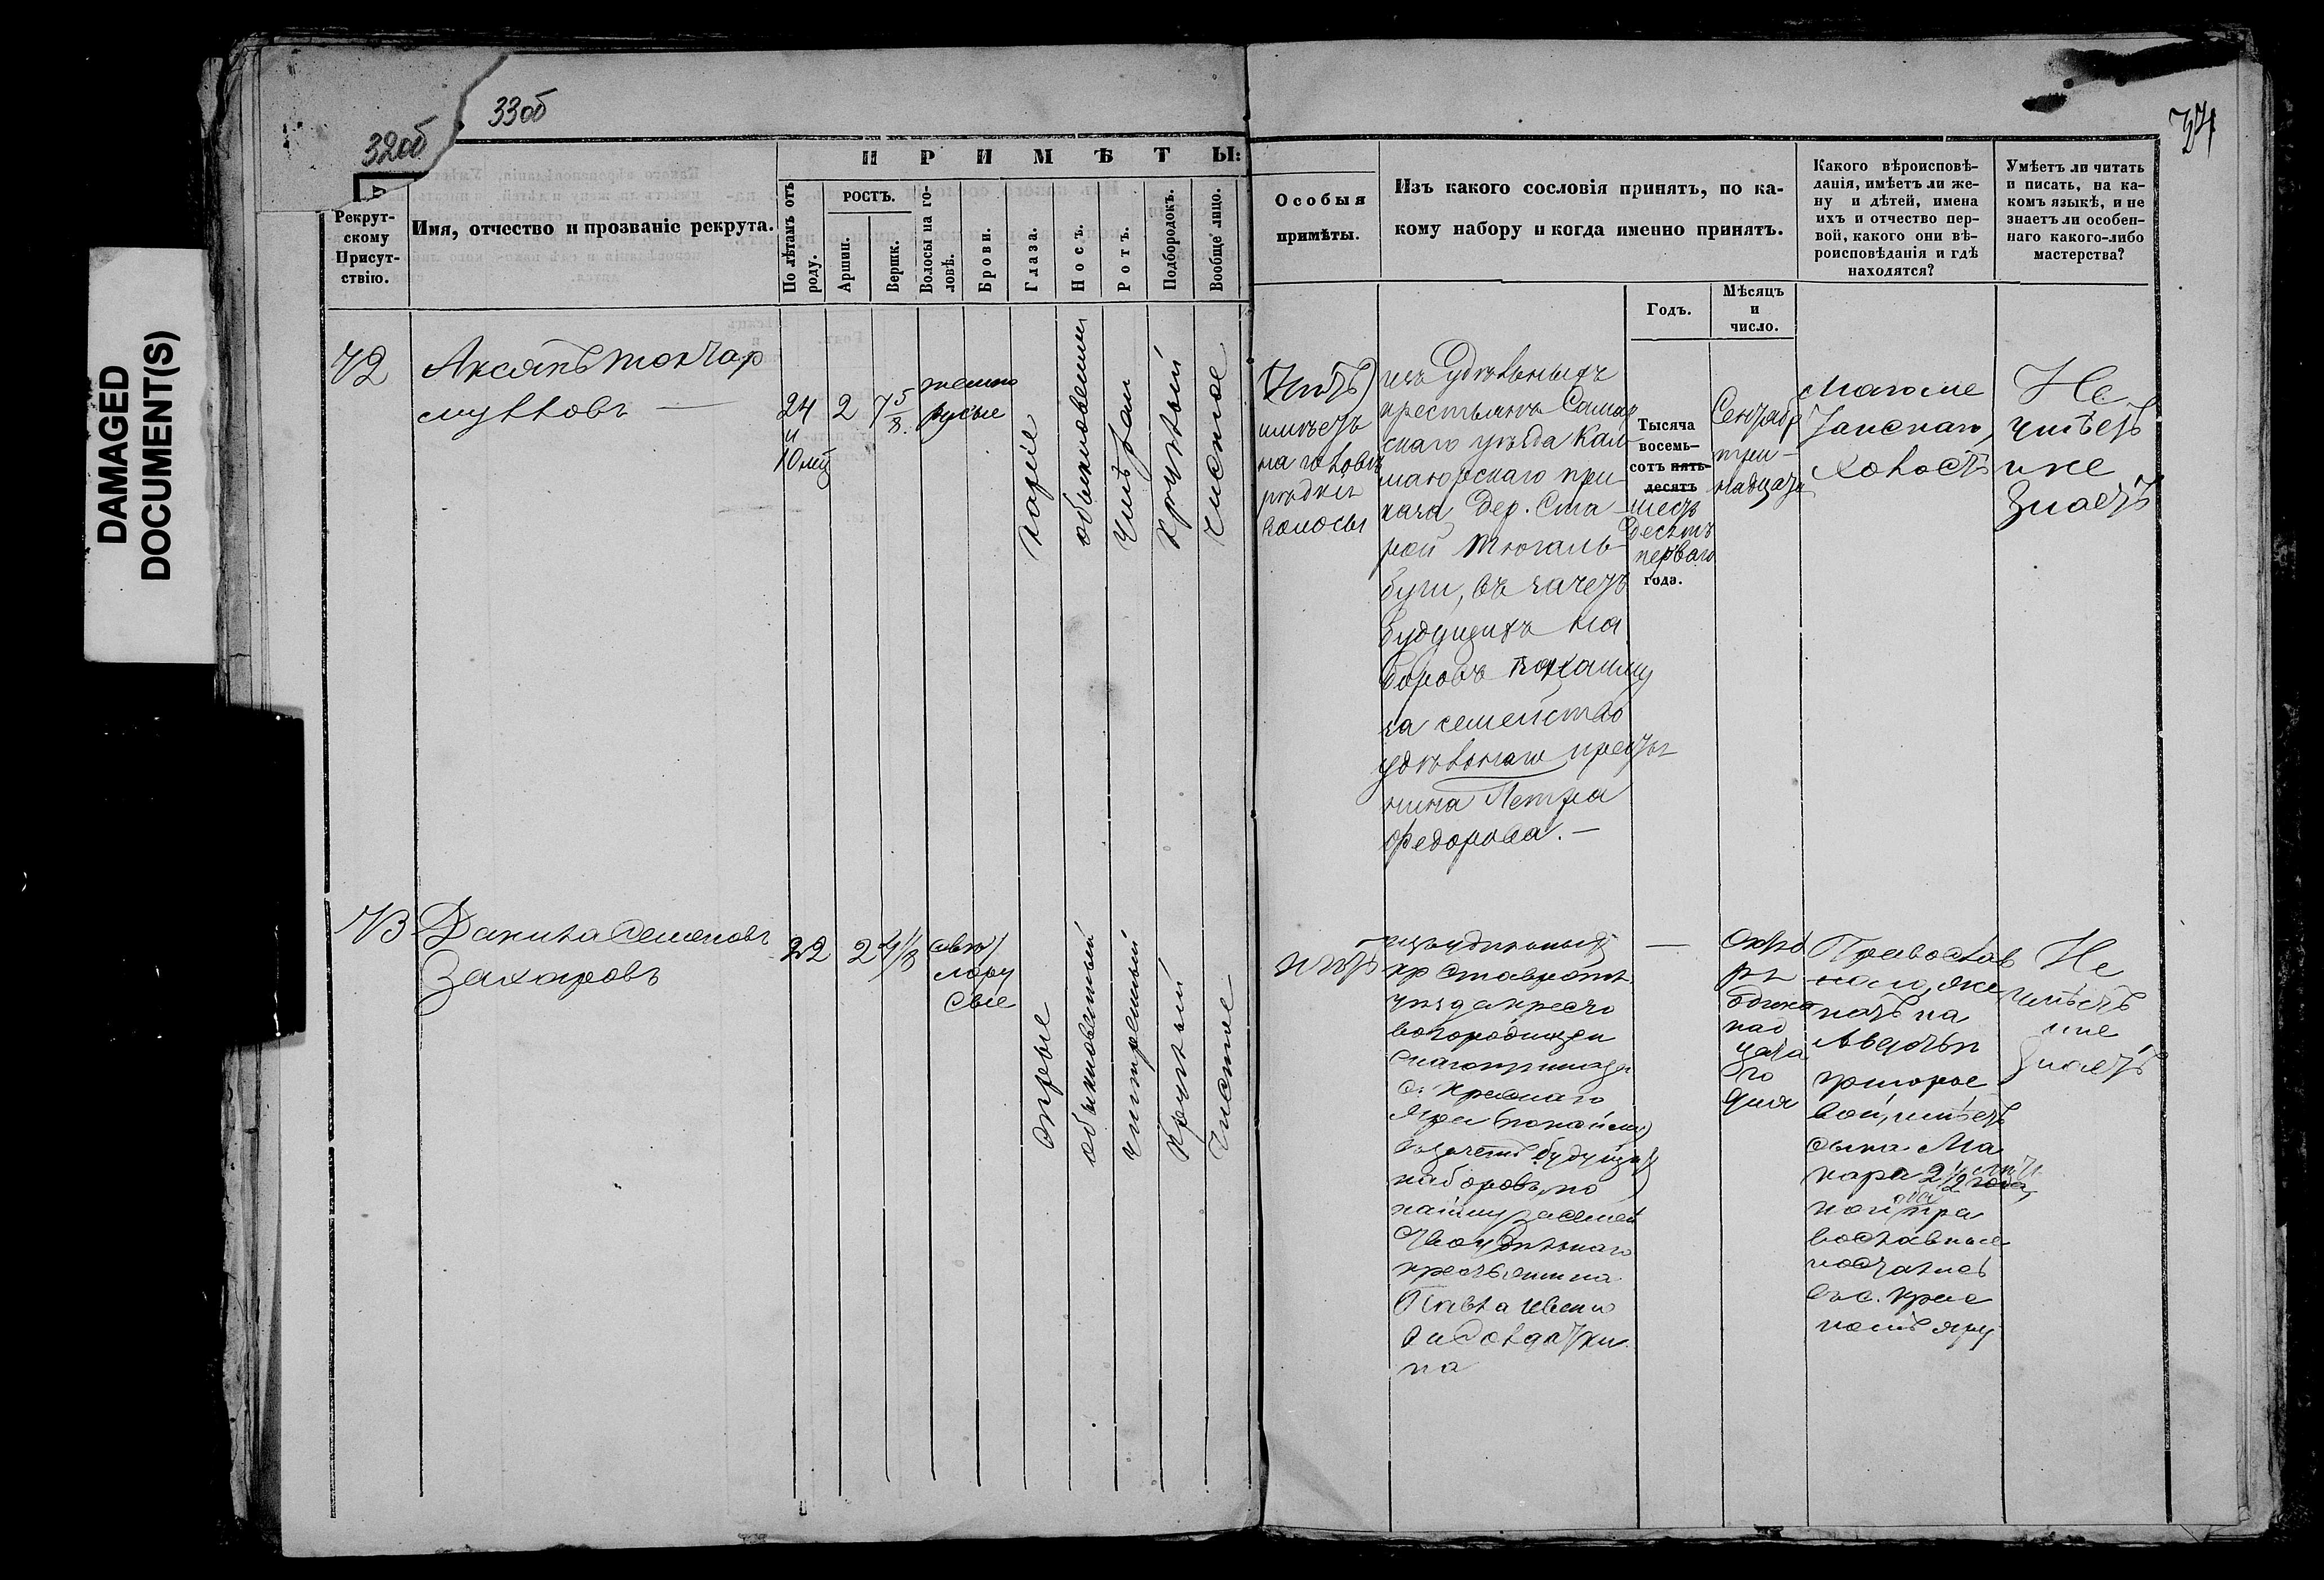 DAMAGED
DOCUMENT(S)
32об
33об
34
ПРИМѢТЫ:
Рекрут-
скому
Присут-
ствію.
Имя, отчество и прозваніе рекрута.
По лѣтамъ отъ
роду.
РОСТЪ.
Аршин.
Вершк.
Волосы на го-
ловѣ.
Брови.
Глаза.
Носъ.
Ротъ.
Подбородокъ.
Вообще лицо.
Особыя
примѣты.
Изъ какого сословія принятъ, по ка-
кому набору и когда именно принятъ.
Годъ.
Мѣсяцъ
и
число.
Какого вѣроисповѣ-
данія, имѣетъ ли же-
ну и дѣтей, имена
ихъ и отчество пер-
вой, какого они вѣ-
роисповѣданія и гдѣ
находятся?
Умѣетъ ли читать
и писать, на ка-
комъ языкѣ, и не
знаетъ ли особен-
наго какого-либо
мастерства?
72
24
и
10 мц
2
7 5/8.
темно
русые
каріе
обыкновенны
круглый
чистое
имѣетъ
на головѣ
рѣдкіе
волосы
изъ Удѣльныхъ
крестьянъ Самар
скаго уѣзда
при-
каза Дер. Ста-
рой Тюгаль-
буги, въ зачетъ
будущихъ на
боровъ по найму
за семейство
удѣльнаго кресть
нина Петра
Федорова. —
Тысяча
восемь-
сотъ пять-
десятъ
шесть
десятъ
перваго
года.
Сентябр
три-
надцать
Магоме
танскаго,
холостъ
Не
умѣетъ
и не
знаетъ
73
Данила Семеновъ
Захаровъ
22
2
4 1/8
свѣт
лору
сые
сѣрые
обыкновенный
умѣренный
круглый
чистое
нѣтъ
изъ удѣльныхъ
кр Ставропол
уѣзда кресто
вогородицки
с. Краснаго
Яра по найму
въ зачетъ будущих
наборовъ, по
найму за семей
ство удѣльнаго
крестьянина
Павла Ивано
ва Солдаткина
—
октяб
ря
одина
над
цата
го
дня
Православ
наго, же
натъ на
Авдотьи
Григорье
вой, имѣетъ
сына Ма
кара 2 1/2 лѣтъ
оба
пра
вославные
остались
въ с. Крас
номъ яру
Не
умѣетъ
и не
знаетъ